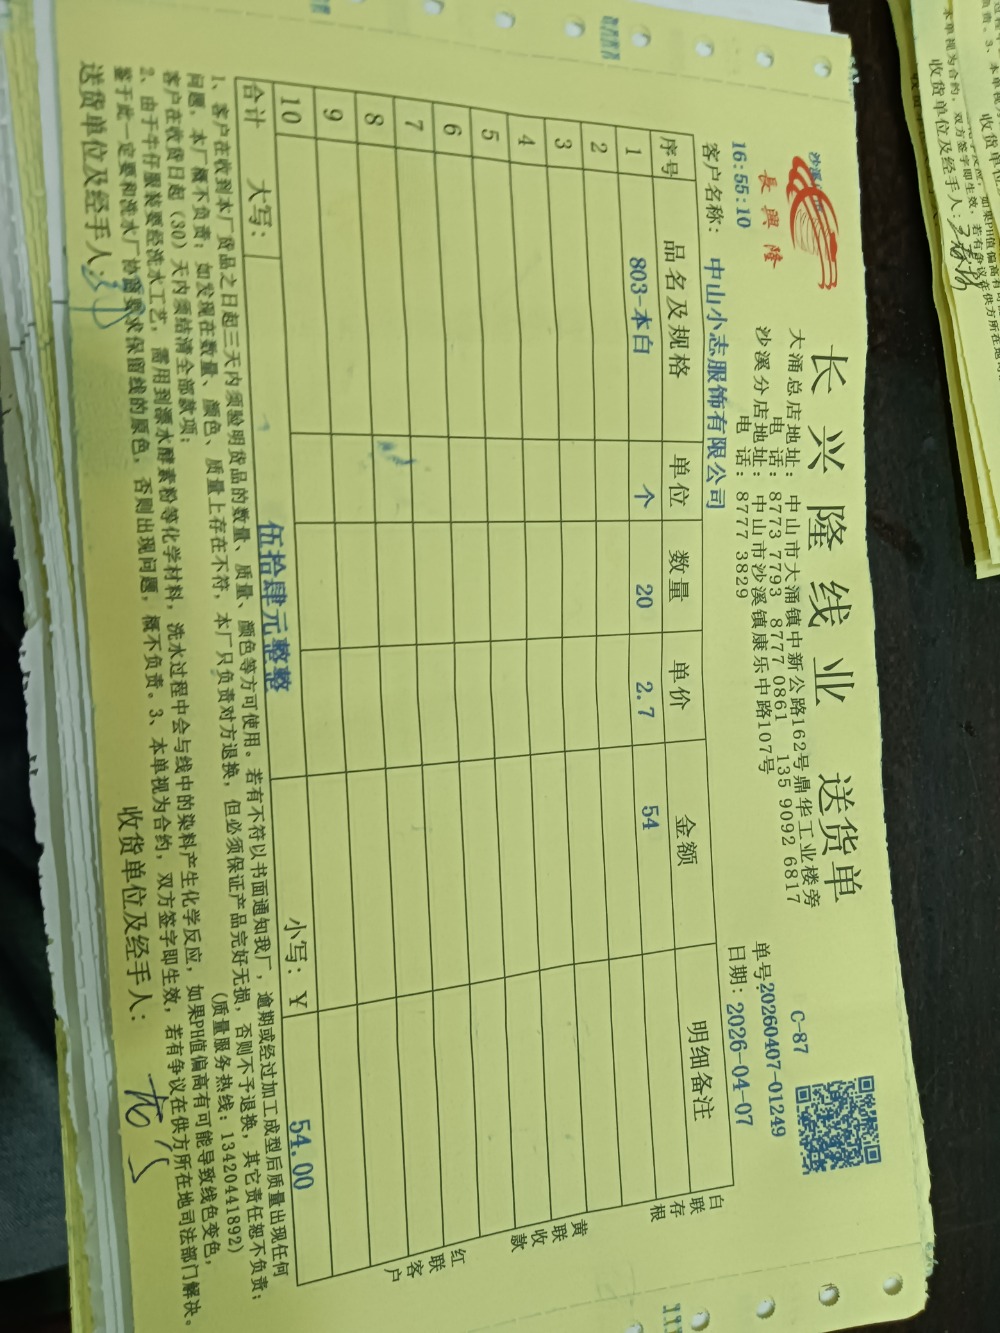 长兴隆线业 送货单
長興隆
大涌总店地址: 中山市大涌镇中新公路162号鼎华工业楼旁
电 话: 8773 7793 8777 0861 135 9092 6817
沙溪分店地址: 中山市沙溪镇康乐中路107号
电 话: 8777 3829
C-87
单号:20260407-01249
16:55:10
日期: 2026-04-07
客户名称: 中山小志服饰有限公司
序号 品名及规格 单位 数量 单价 金额 明细备注
1 803-本白 个 20 2.7 54
2
3
4
5
6
7
8
9
10
合计 大写: 伍拾肆元整整 小写: ¥ 54.00
白联存根
黄联收款
红联客户
1、客户在收到本厂货品之日起三天内须验明货品的数量、质量、颜色等方可使用。若有不符以书面通知我厂，逾期或经过加工成型后质量出现任何
问题，本厂概不负责；如发现在数量、颜色、质量上存在不符，本厂只负责对方退换，但必须保证产品完好无损，否则不予退换，其它责任恕不负责；
客户在收货日起（30）天内须结清全部款项； (质量服务热线: 13420441892)
2、由于牛仔服装要经洗水工艺，需用到漂水酵素粉等化学材料，洗水过程中会与线中的染料产生化学反应，如果PH值偏高有可能导致线色变色，
鉴于此一定要和洗水厂协商要求保留线的原色，否则出现问题，概不负责。3、本单视为合约，双方签字即生效，若有争议在供方所在地司法部门解决。
送货单位及经手人: 收货单位及经手人: